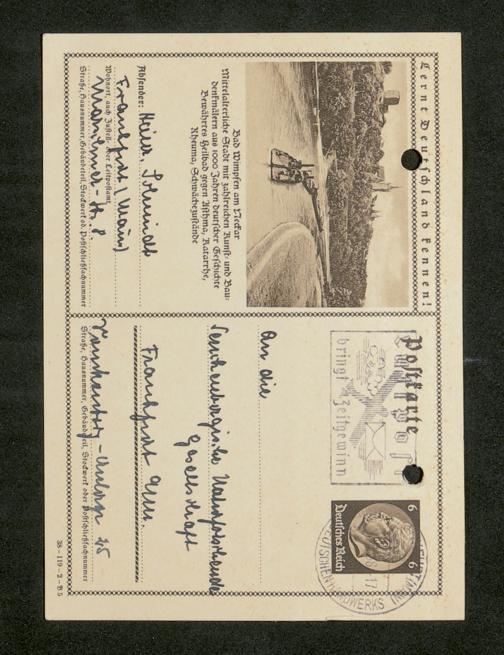 Lerne Deutschland kennen!
Bad Wimpfen am Neckar
Mittelalterliche Stadt mit zahlreichen Kunst- und Bau-
denkmälern aus 1000 Jahren deutscher Geschichte
Bewährtes Heilbad gegen Asthma, Katarrhe,
Rheuma, Schwächezustände
Absender: Heinr.
Frankfurt (Main)
Wohnort, auch Zustell- oder Leitpostamt
Straße, Hausnummer, Gebäudeteil, Stockwerk od. Postschließfachnummer
Postkarte
Luftpost
bringt Zeitgewinn
6 6
Deutsches Reich
17
DEUTSCHEN HANDWERKS
An die
Senckenbergische Naturforschende
Gesellschaft
Frankfurt
Anlage 25
Straße, Hausnummer, Gebäudeteil, Stockwerk oder Postschließfachnummer
38-119-2-B5